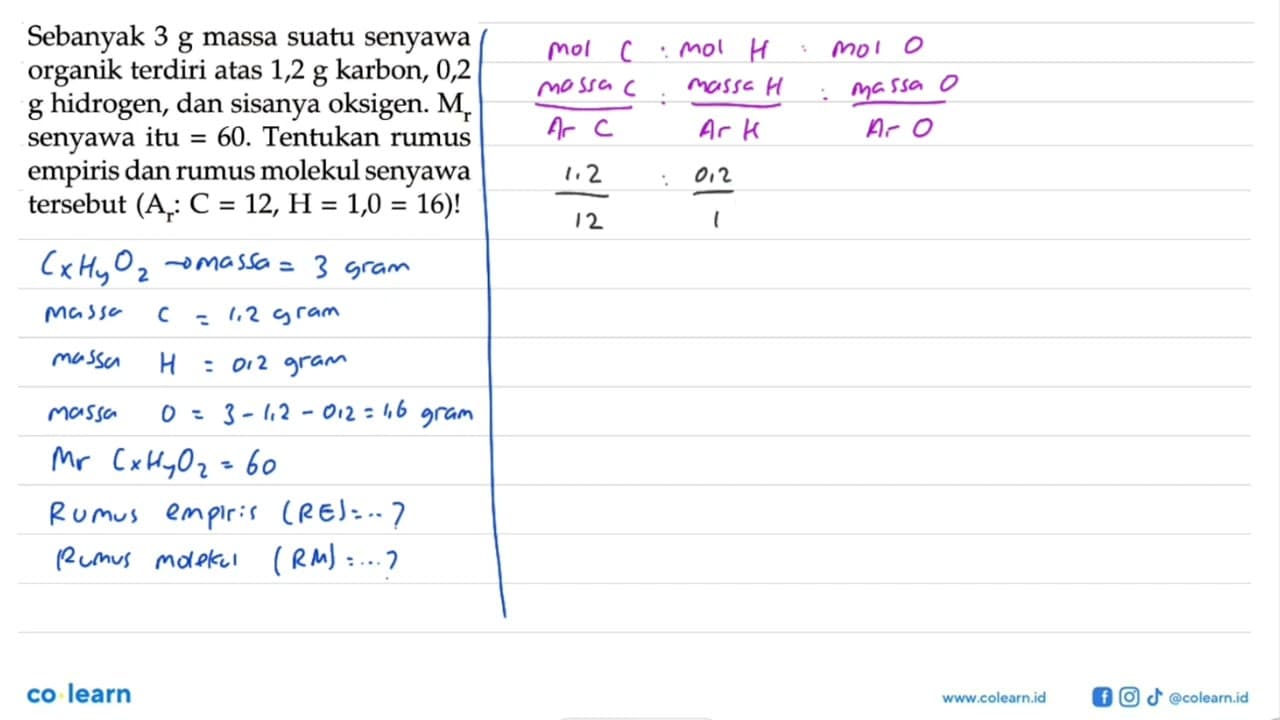 Sebanyak 3 g massa suatu senyawa
organik terdiri atas 1,2 g karbon, 0,2
g hidrogen, dan sisanya oksigen. Mr
senyawa itu = 60. Tentukan rumus
empiris dan rumus molekul senyawa
tersebut (Ar: C = 12, H = 1,0 = 16)!
CxHyOz → massa = 3 gram
massa C = 1,2 gram
massa H = 0,2 gram
massa O = 3 - 1,2 - 0,2 = 1,6 gram
Mr CxHyOz = 60
Rumus empiris (RE) = ..?
Rumus molekul (RM) = ...?
mol C : mol H : mol O
massa C : massa H : massa O
Ar C Ar H Ar O
1,2 : 0,2
12 1
co·learn
www.colearn.id
@colearn.id